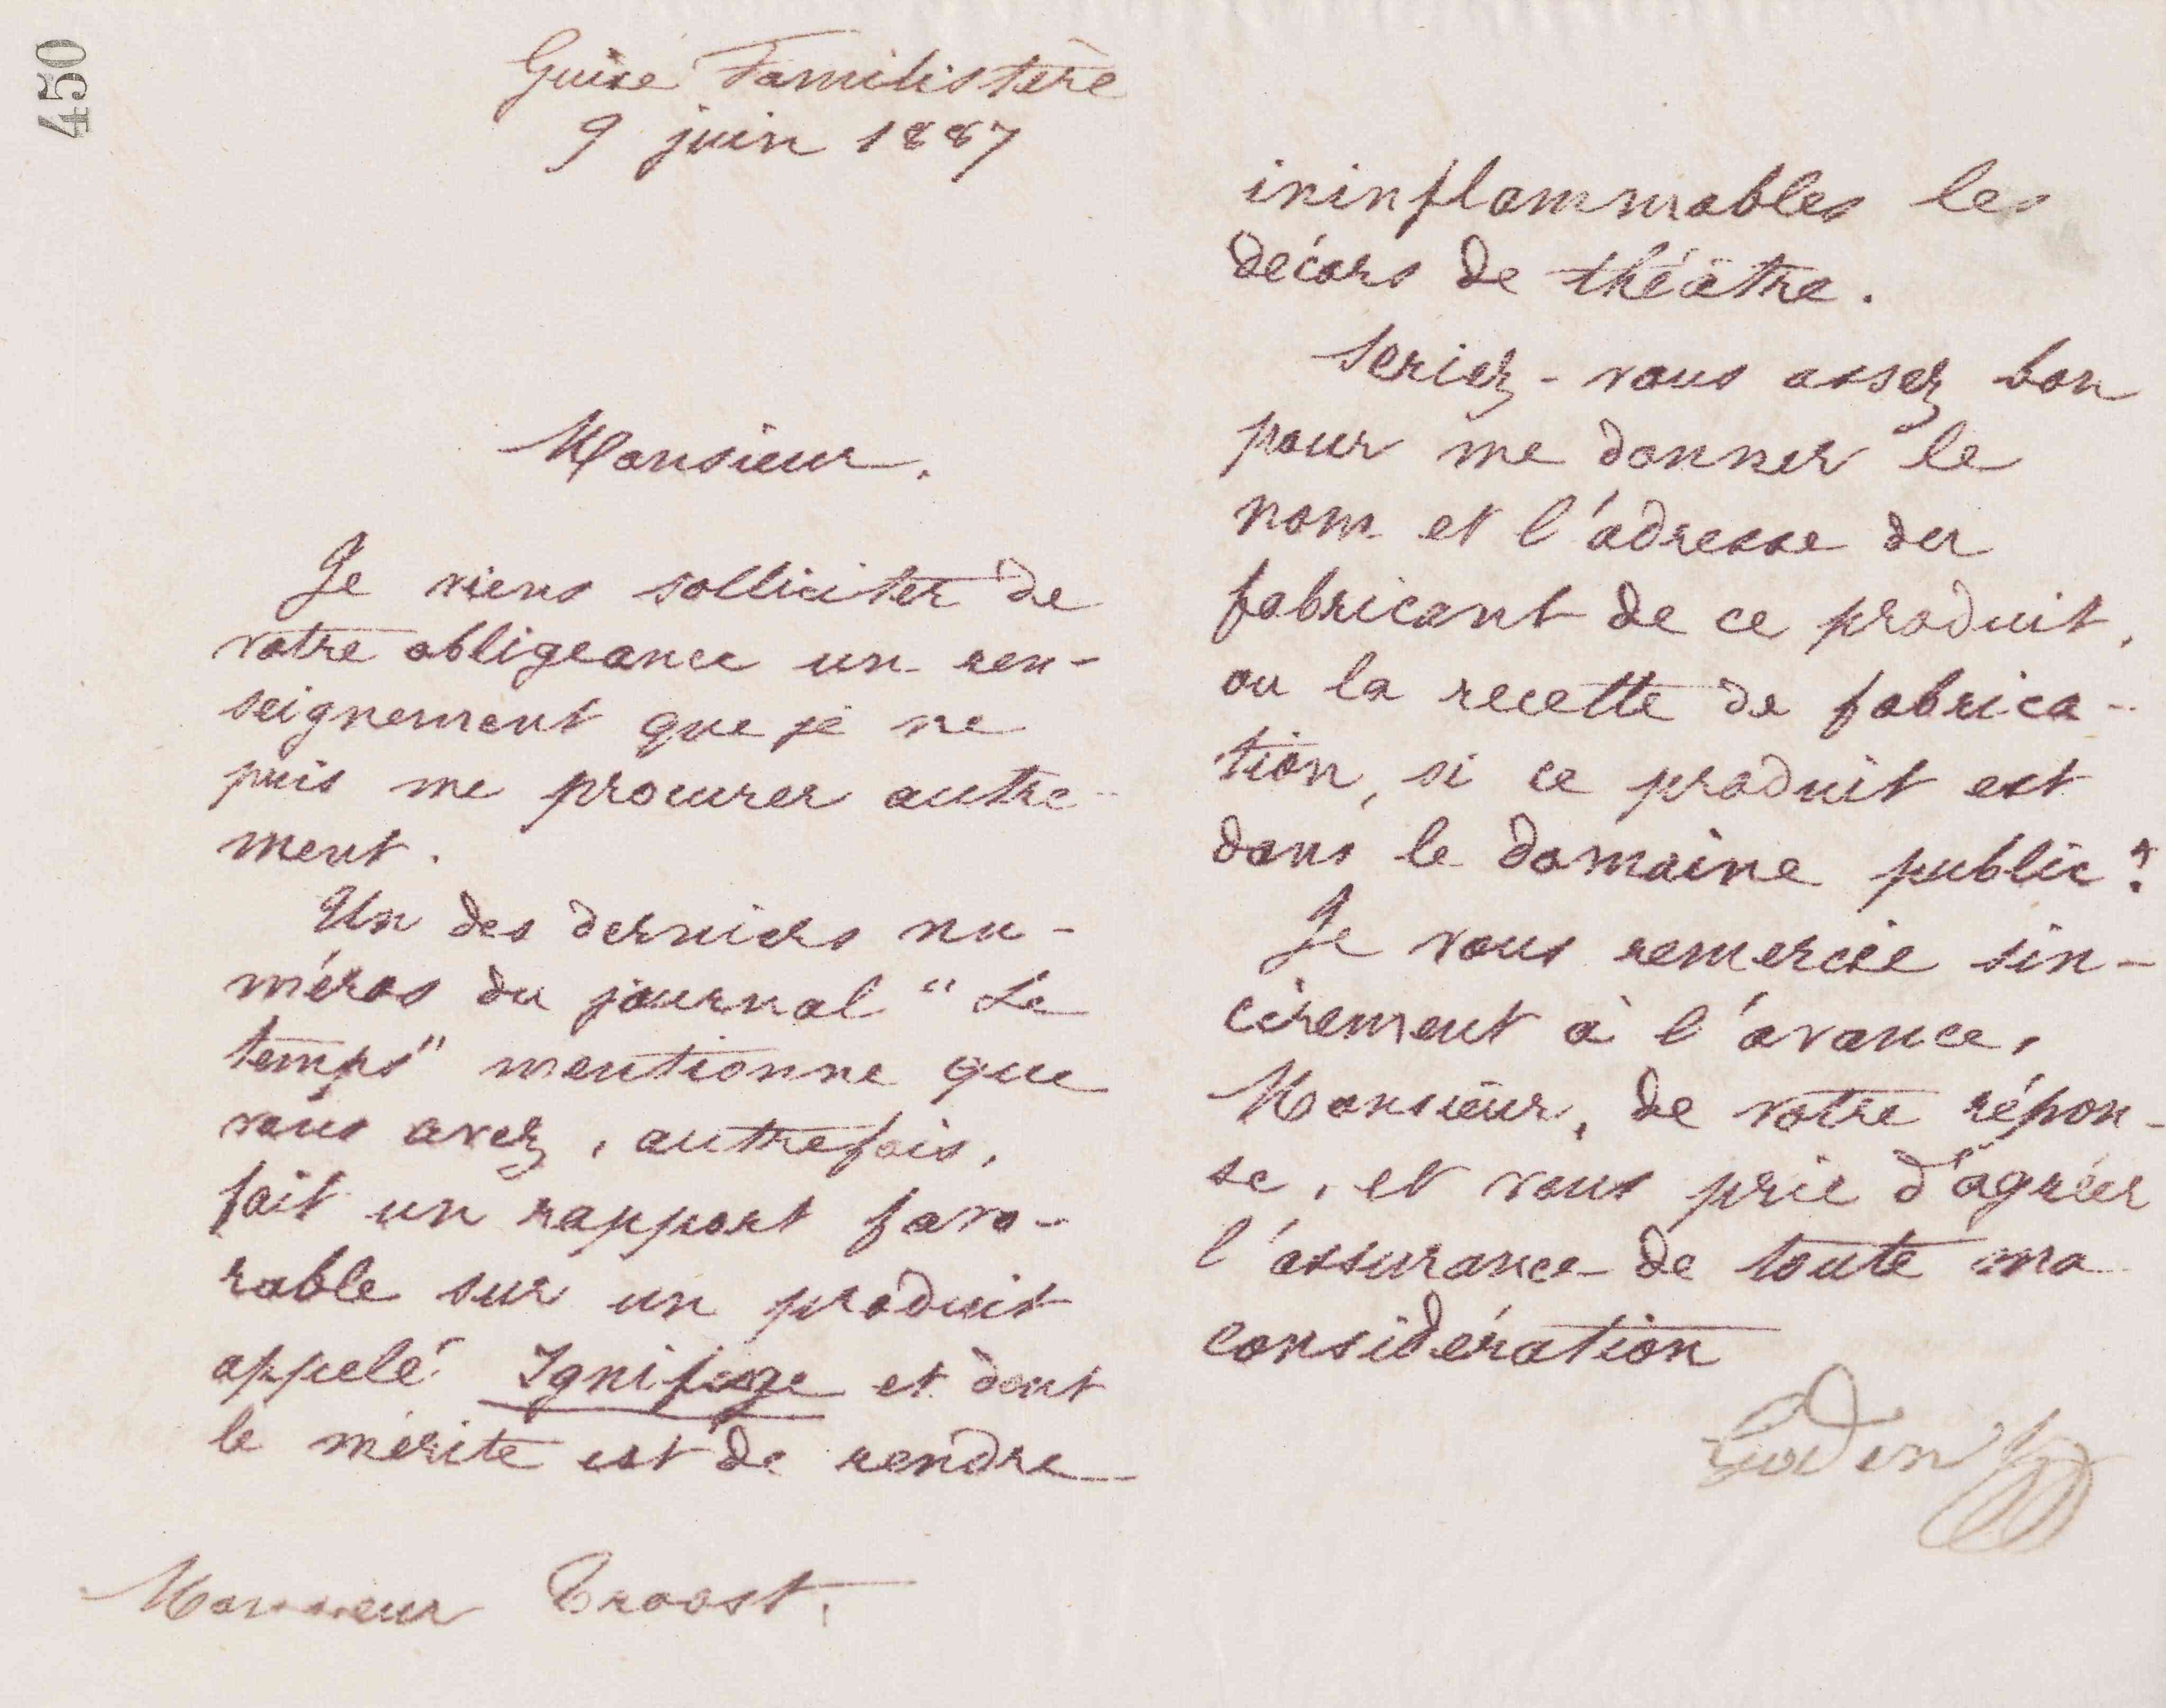 450
Guise Familistère
9 juin 1887
Monsieur,
Je viens solliciter de
votre obligeance un ren-
seignement que je ne
puis me procurer autre-
ment.
Un des derniers nu-
méros du journal "Le
temps" mentionne que
vous avez, autrefois,
fait un rapport favo-
rable sur un produit
appelé Ignifuge et dont
le mérite est de rendre
Monsieur Troost.
ininflammables les
décors de théâtre.
Seriez-vous assez bon
pour me donner le
nom et l'adresse du
fabricant de ce produit,
ou la recette de fabrica-
tion, si ce produit est
dans le domaine public?
Je vous remercie sin-
cèrement à l'avance,
Monsieur, de votre répon-
se, et vous prie d'agréer
l'assurance de toute ma
considération
Godin